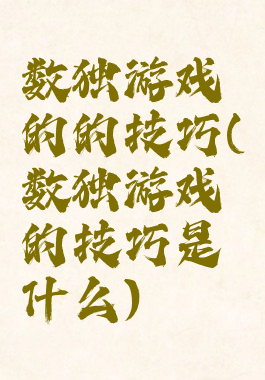 数独游戏
的的技巧(
数独游戏
的技巧是
什么)